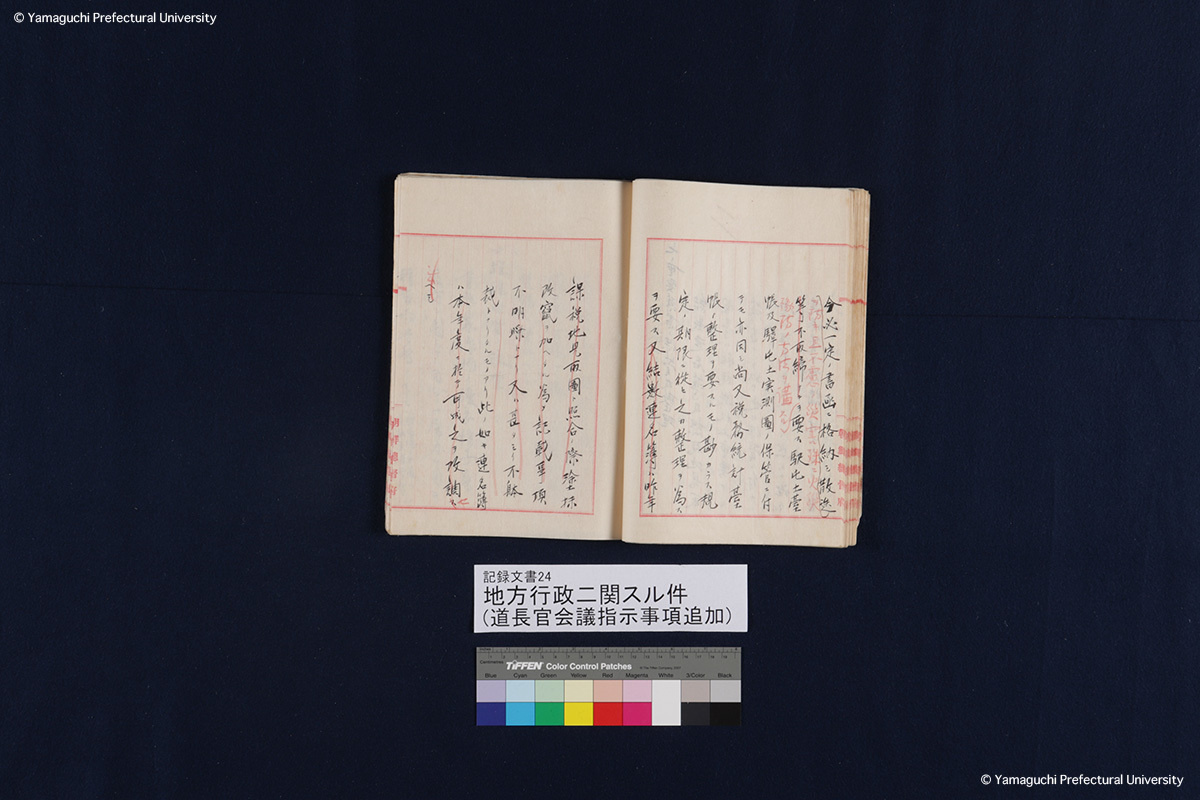 © Yamaguchi Prefectural University
一定ノ書函ニ格納シ散逸
要ス駅屯土臺
帳及驛屯土実測圖ノ保管ニ付
テモ亦同シ尚又税務統計臺
帳ノ整理ヲ要スルモノ勘カラス規
定ノ期限ニ従ヒ之カ整理ヲ為ス
ヲ要ス又結数連名簿ハ昨年
課税地見取圖ノ照合ノ際塗抹
改竄ヲ加ヘタル為メ記載事項
不明瞭トナリ又ハ甚シキ不体
裁トナリタルモノアリ此ノ如キ連名簿
ハ本年度ニ於テ可成之ヲ改調ス
記録文書24
地方行政二関スル件
(道長官会議指示事項追加)
Centimetres
TIFFEN Color Control Patches
Blue Cyan Green Yellow Red Magenta White 3/Color Black
© Yamaguchi Prefectural University